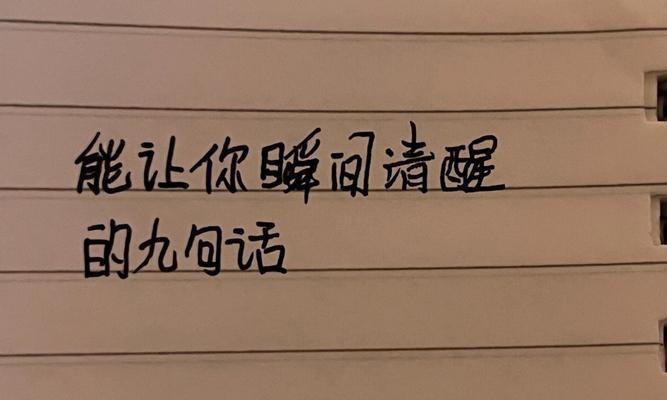 能让你瞬间清醒
的九句话